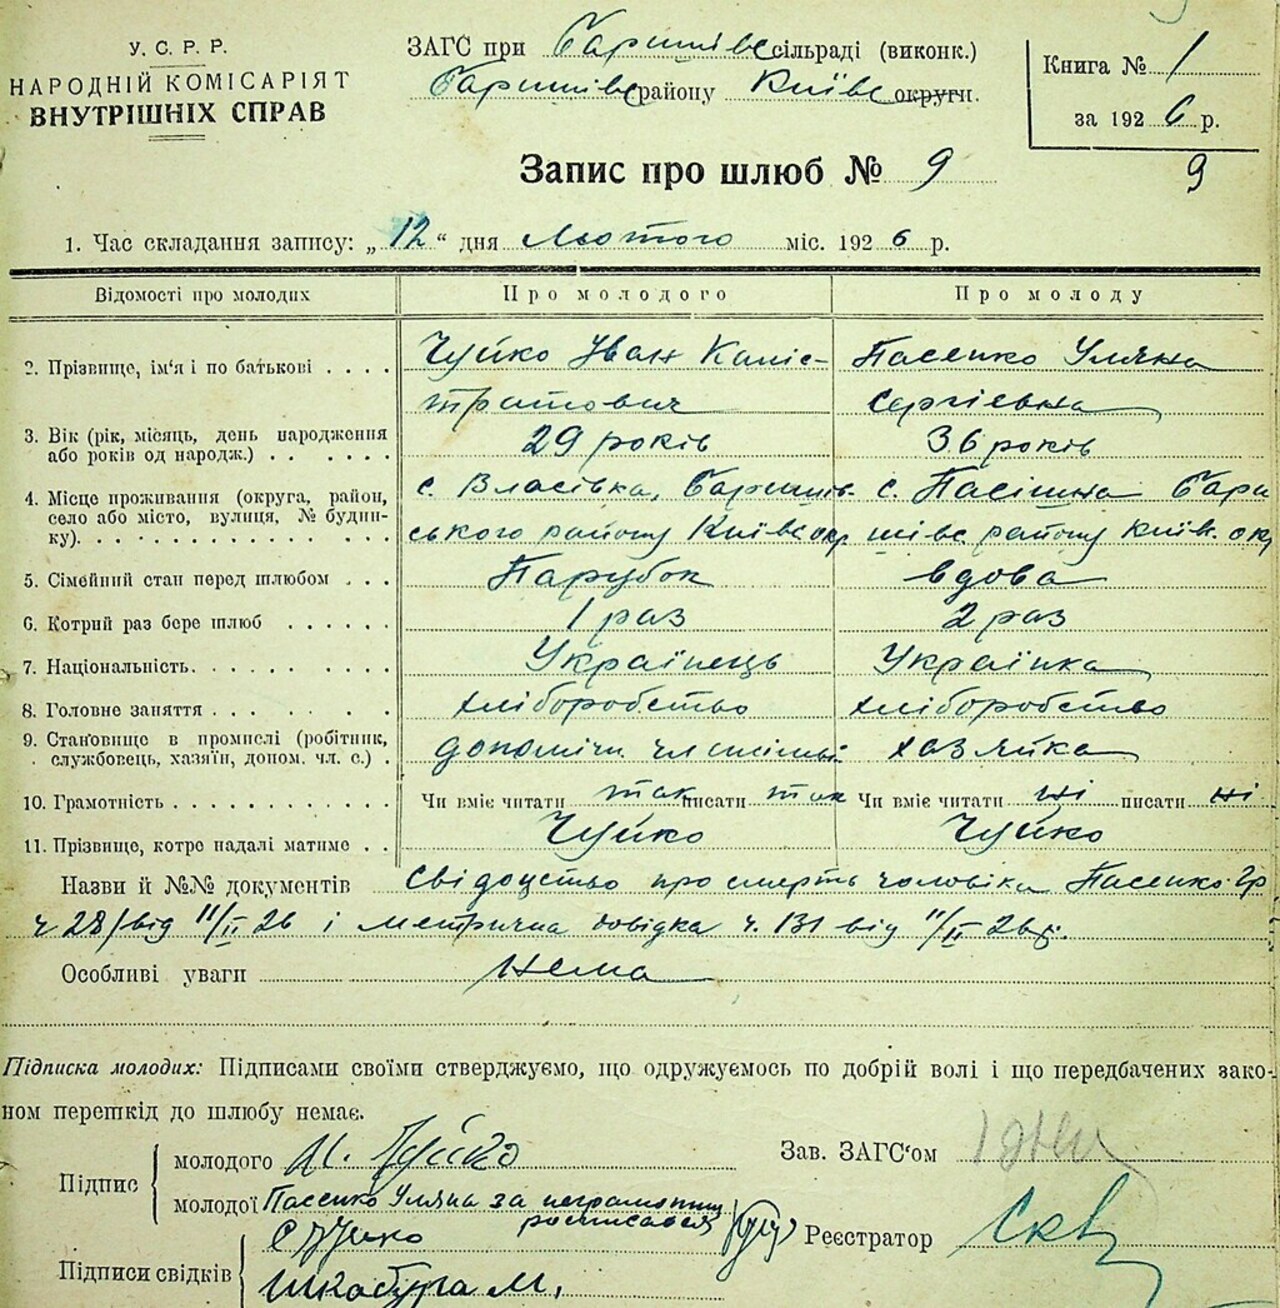 У. С. Р. Р.
НАРОДНІЙ КОМІСАРІЯТ
ВНУТРІШНІХ СПРАВ
ЗАГС при Баришівс сільраді (виконк.)
Баришівс району Київс округи.
Книга № 1
за 1926 р.
Запис про шлюб № 9
9
1. Час складання запису: „12“ дня Лютого міс. 1926 р.
Відомості про молодих Про молодого Про молоду
2. Прізвище, ім'я і по батькові . . . . Чуйко Іван Каліс- Пасенко Уляна
тратович Сергієвна
3. Вік (рік, місяць, день народження
або років од народж.) . . . . . . 29 років 36 років
4. Місце проживання (округа, район, с. Власівка, Баришів- с. Пасішна Бари
село або місто, вулиця, № будин-
ку). . . . . . . . . . . . . . ського району Київс окр шівс. району Київ. ок
5. Сімейний стан перед шлюбом . . . Парубок вдова
6. Котрий раз бере шлюб . . . . . . 1 раз 2 раз
7. Національність. . . . . . . . . Українець Українка
8. Головне заняття . . . . . . . хліборобство хліборобство
9. Становище в промислі (робітник,
службовець, хазяїн, допом. чл. с.) . допоміжн. чл сім'ї хазяйка
10. Грамотність . . . . . . . . . . . Чи вміє читати так писати так Чи вміє читати ні писати ні
11. Прізвище, котре надалі матиме . . Чуйко Чуйко
Назви й №№ документів Свідоцтво про смерть чоловіка Пасенко Гр
ч 28/від 11/II 26 і метрична довідка ч. 131 від 11/II 26 р.
Особливі уваги Нема
Підписка молодих: Підписами своїми стверджуємо, що одружуємось по добрій волі і що передбачених зако-
ном перешкід до шлюбу немає.
Підпис
молодого И. Чуйко
молодої Пасенко Уляна за неграмотну
росписався
Зав. ЗАГС'ом
Реєстратор
Підписи свідків
Шкабура М.